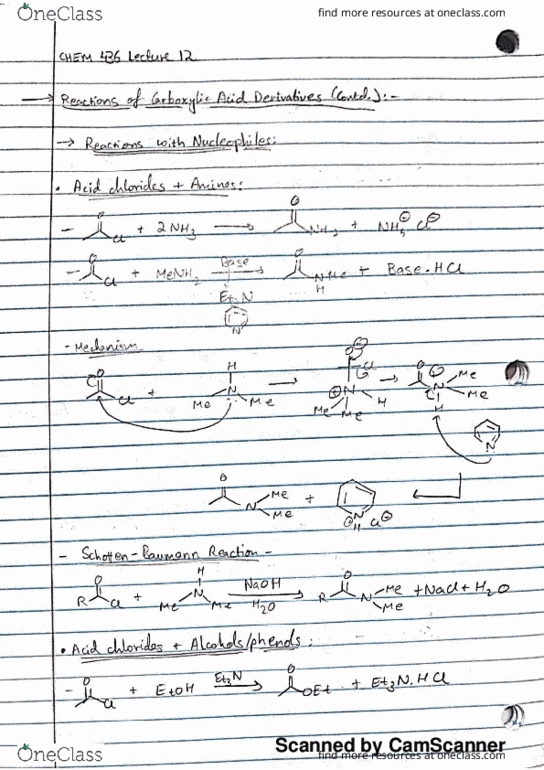 OneClass find more resources at oneclass.com
CHEM 436 Lecture 12
→ Reactions of Carboxylic Acid Derivatives (Contd.):-
→ Reactions with Nucleophiles:
• Acid chlorides + Amines:
- O Cl + 2 NH3 → O NH2 + NH4 ⊕ Cl ⊖
- O Cl + MeNH2 Base → O NMe H + Base·HCl
Et3N
N
- Mechanism
O Cl + H N Me Me → O ⊖ Cl ⊕ N H Me Me → O ⊕ N Me Me H
N
O N Me Me + N ⊕ H Cl ⊖
- Schotten-Baumann Reaction -
R O Cl + H N Me Me NaOH H2O → R O N Me Me + NaCl + H2O
• Acid chlorides + Alcohols/phenols:
- O Cl + EtOH Et3N → O OEt + Et3N.HCl
Scanned by CamScanner
OneClass find more resources at oneclass.com